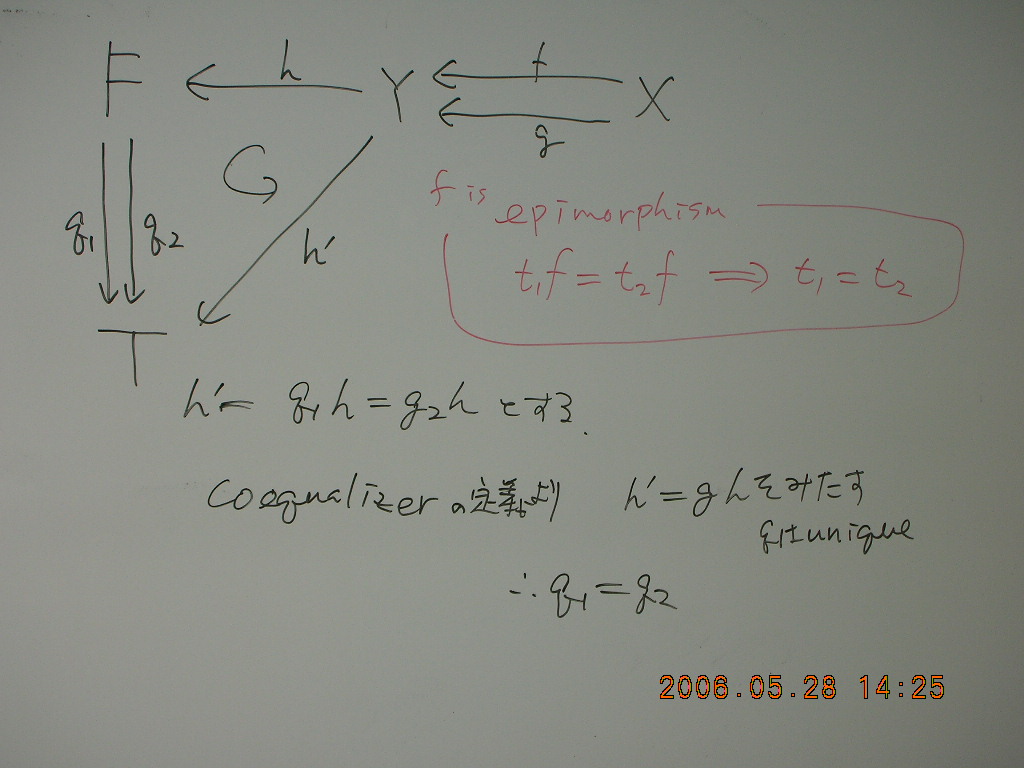 F h Y f X
g
q₁ q₂ h'
T
f is epimorphism
t₁f = t₂f ⟹ t₁ = t₂
h' = q₁h = q₂h とする.
coequalizerの定義より h' = qhをみたす
qはunique
∴ q₁ = q₂
2006.05.28 14:25